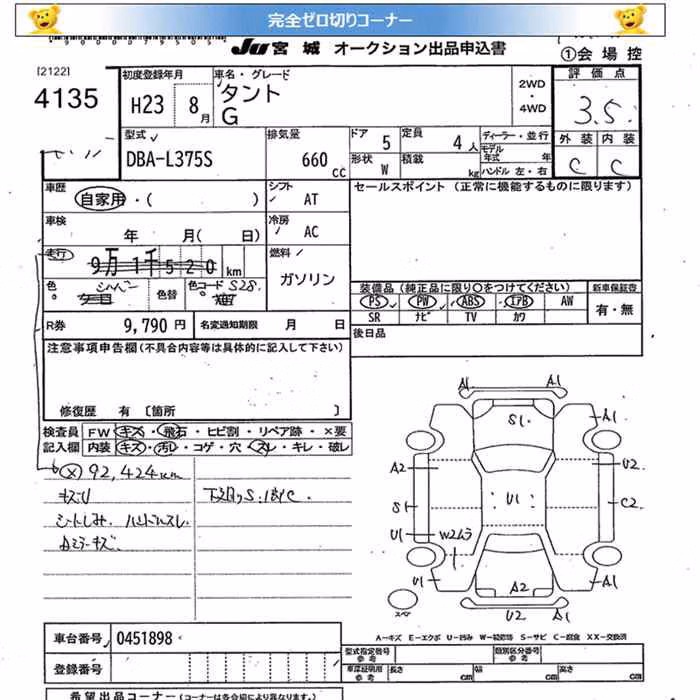 完全ゼロ切りコーナー
JU 宮城 オークション出品申込書
①会場控
[2122]
4135
初度登録年月
H23 8月
車名・グレード
タント
G
2WD
・
4WD
評価点
3.5
外装 内装
C C
型式
DBA-L375S
排気量
660 cc
ドア 5
定員 4人
形状 W
積載 kg
ディーラー・並行
モデル年式 年
ハンドル 左・右
車歴
自家用・( )
シフト
AT
セールスポイント (正常に機能するものに限ります)
車検
年 月( 日)
冷房
AC
走行
9万1千520 km
燃料
ガソリン
色 シルバー
色替
色コード S28.
装備品 (純正品に限り○をつけてください)
新車保証書
PS PW ABS エアB AW
SR ナビ TV カワ
有・無
R券 9,790 円
名変通知期限 月 日
後日品
注意事項申告欄(不具合内容等は具体的に記入して下さい)
修復歴 有 〔箇所 〕
検査員
記入欄
FW キズ・飛石・ヒビ割・リペア跡・×要
内装 キズ・汚レ・コゲ・穴・スレ・キレ・破レ
(メ) 92,424km
キズU
シートしみ. ハンドルスレ.
下廻りS.
A1 A1
S1
A1
A2
U2
S1
U1
C2
U1
W2ムラ
U1
A2
A1
U2 A1
スペア
A―キズ E―エクボ U―凹み W―補修跡 S―サビ C―腐食 XX―交換済
車台番号 0451898
登録番号
型式指定番号
参考
類別区分番号
参考
車庫証明用
参考
長さ cm 幅 cm 高さ cm
希望出品コーナー(コーナーは各会場により異なります。)